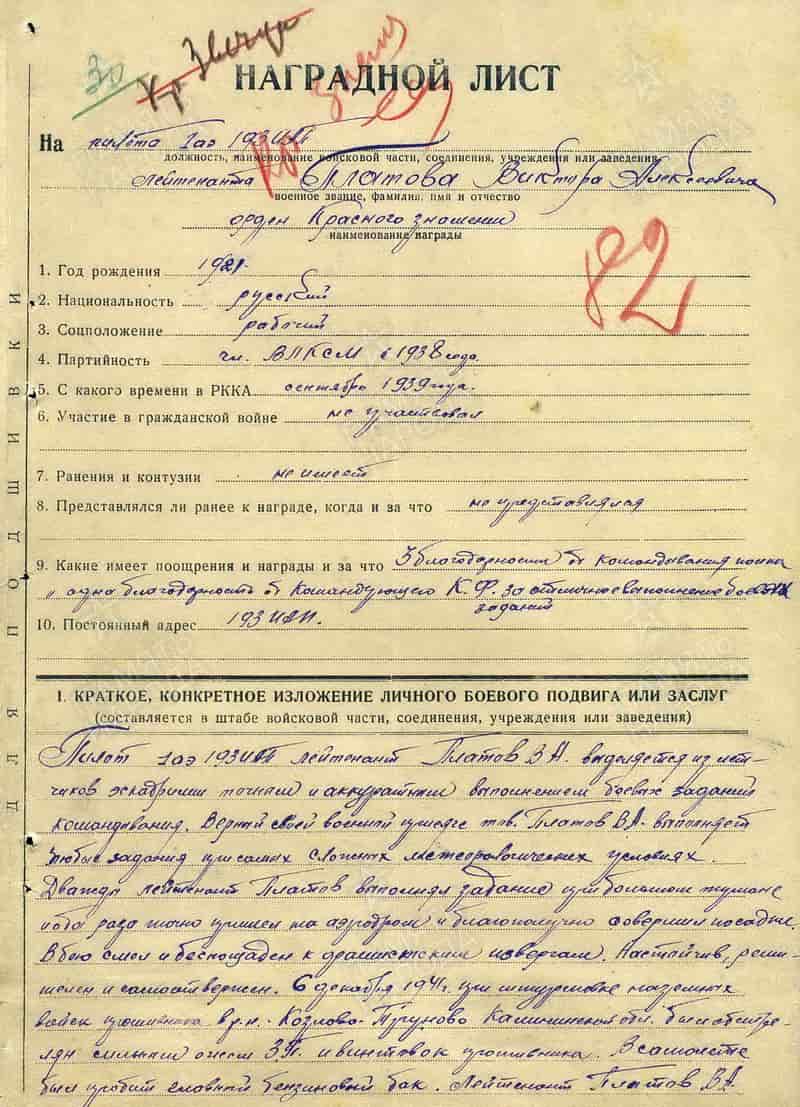 30
Кр. Звезду
Кр. Знамя
НАГРАДНОЙ ЛИСТ
На пилота 1аэ 193 ИАП
должность, наименование войсковой части, соединения, учреждения или заведения
лейтенанта Платова Виктора Алексеевича
военное звание, фамилия, имя и отчество
орден Красного знамени
наименование награды
82
1. Год рождения 1921
2. Национальность русский
3. Соцположение рабочий
4. Партийность чл. ВЛКСМ с 1938 года.
5. С какого времени в РККА сентябрь 1939 года.
6. Участие в гражданской войне не участвовал
7. Ранения и контузии не имеет
8. Представлялся ли ранее к награде, когда и за что не представлялся
9. Какие имеет поощрения и награды и за что 3 благодарности от командования полка
и одна благодарность от командующего К.Ф. за отличное выполнение боевых
заданий
10. Постоянный адрес 193 ИАП.
ДЛЯ ПОДШИВКИ
I. КРАТКОЕ, КОНКРЕТНОЕ ИЗЛОЖЕНИЕ ЛИЧНОГО БОЕВОГО ПОДВИГА ИЛИ ЗАСЛУГ
(составляется в штабе войсковой части, соединения, учреждения или заведения)
Пилот 1аэ 193 ИАП лейтенант Платов В.А. выделяется из лет-
чиков эскадрилии точным и аккуратным выполнением боевых заданий
командования. Верный своей военной присяге тов. Платов В.А. выполняет
любые задания при самых сложных метеорологических условиях.
Дважды лейтенант Платов выполнял задание при большом тумане
и оба раза точно пришел на аэродром и благополучно совершил посадки.
В бою смел и беспощаден к фашистским извергам. Настойчив, реши-
телен и самоотвержен. 6 декабря 1941г. при штурмовке наземных
войск противника в р-н. Козлово- Калининской обл. был обстре-
лян сильным огнем З.П. и винтовок противника. В самолете
был пробит главный бензиновый бак. Лейтенант Платов В.А.